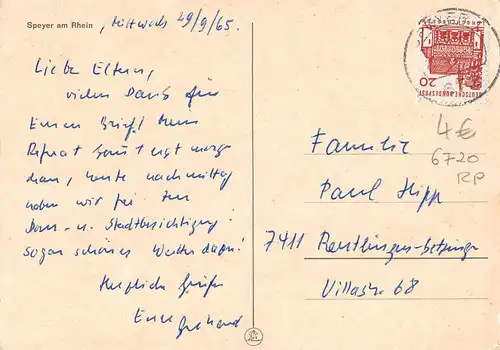 Speyer am Rhein , Mittwoch 29/9/65.
Liebe Eltern,
vielen Dank für
Euren Brief! Mein
Referat kommt erst morgen
dran, heute nachmittag
haben wir frei zur
Dom- u. Stadtbesichtigung!
Sogar schönes Wetter dafür!
Herzliche Grüße
Euer
20
DEUTSCHE BUNDESPOST
4€
6720
RP
Familie
Paul Hipp
7411 Reutlingen-Betzingen
Villastr. 68